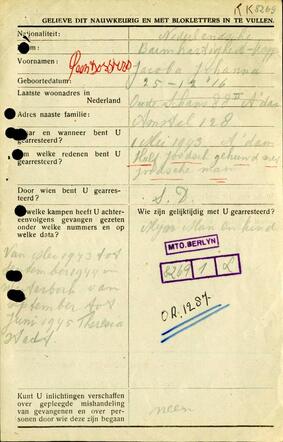 K K 8269
GELIEVE DIT NAUWKEURIG EN MET BLOKLETTERS IN TE VULLEN.
Nationaliteit: Nederlandsche
Naam:
Voornamen: Jacoba Johanna
Geboortedatum: 25-12-16
Laatste woonadres in
Nederland Oude Schans 82 III A'dam
Adres naaste familie: Amstel 128
Waar en wanneer bent U
gearresteerd? 1 Mei 1943 A'dam
Om welke redenen bent U gearresteerd? Half joodsch gehuwd met
joodsche man
Door wien bent U gearresteerd? S. D.
In welke kampen heeft U achtereenvolgens gevangen gezeten
onder welke nummers en op
welke data?
Wie zijn gelijktijdig met U gearresteerd?
Mijn Man en kind
Van Mei 1943 tot
september 1944 in
Westerbork van
September tot
Juni 1945 Theresia
Stadt
MTO. BERLYN
8269 1 2
O.R. 1287
Kunt U inlichtingen verschaffen
over gepleegde mishandeling
van gevangenen of over personen
door wie deze zijn begaan
neen